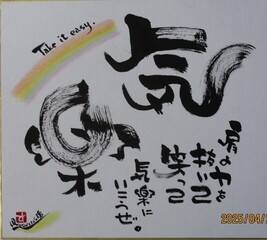 Take it easy.
気楽
肩の力を
抜いて
笑って
気楽に
いこうぜ。